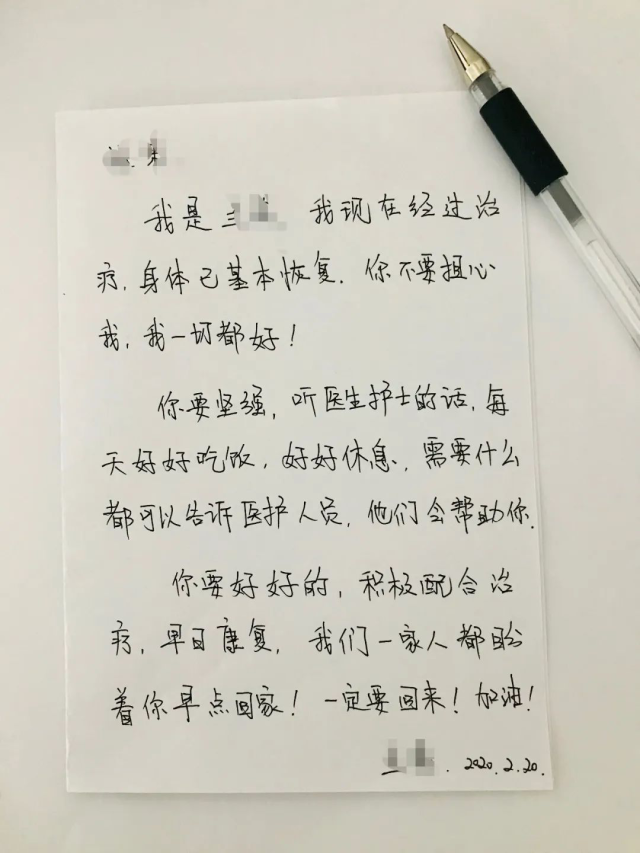 我是 我现在经过治
疗,身体已基本恢复.你不要担心
我,我一切都好!
你要坚强,听医生护士的话,每
天好好吃饭,好好休息,需要什么
都可以告诉医护人员,他们会帮助你.
你要好好的,积极配合治
疗,早日康复,我们一家人都盼
着你早点回家!一定要回来!加油!
. 2020.2.20.